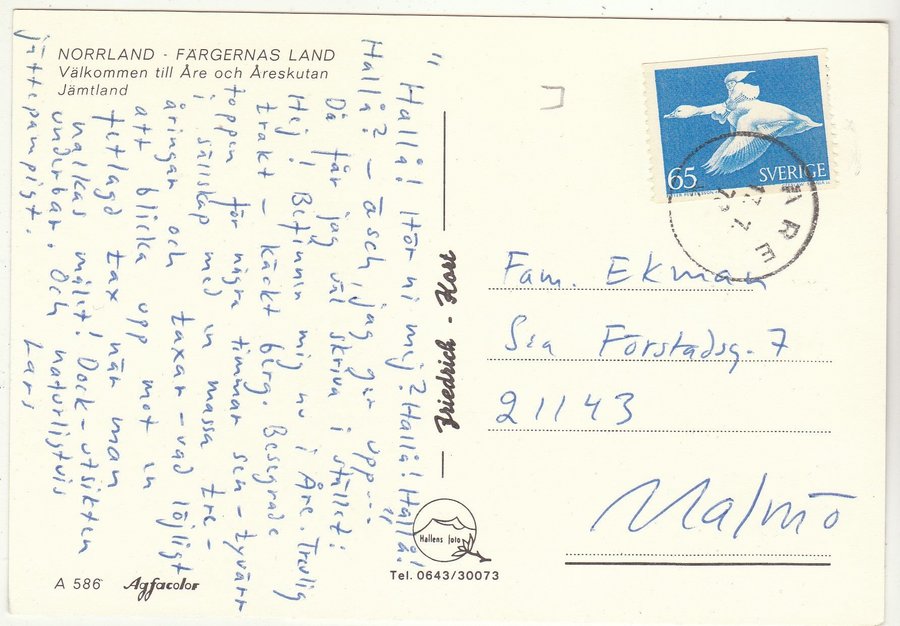 NORRLAND - FÄRGERNAS LAND
Välkommen till Åre och Åreskutan
Jämtland
" Hallå! Hör ni mig? Hallå! Hallå!
Hallå? - äsch, jag ger upp... "
Då får jag väl skriva i stället:
Hej! Befinner mig nu i Åre. Trevlig
trakt - käckt berg. Besegrade
toppen för några timmar sen - tyvärr
i sällskap med en massa tre-
åringar och taxar - vad löjligt
att blicka upp mot en
fetlagd tax när man
nalkas målet! Dock - utsikten
underbar. Och naturligtvis
jättepampigt. Lars
Friedrich - Kort
Hallens foto
Tel. 0643/30073
A 586 Agfacolor
65 SVERIGE
ÅRE
17 7
Fam. Ekman
Sea Förstadsg. 7
21143
Malmö